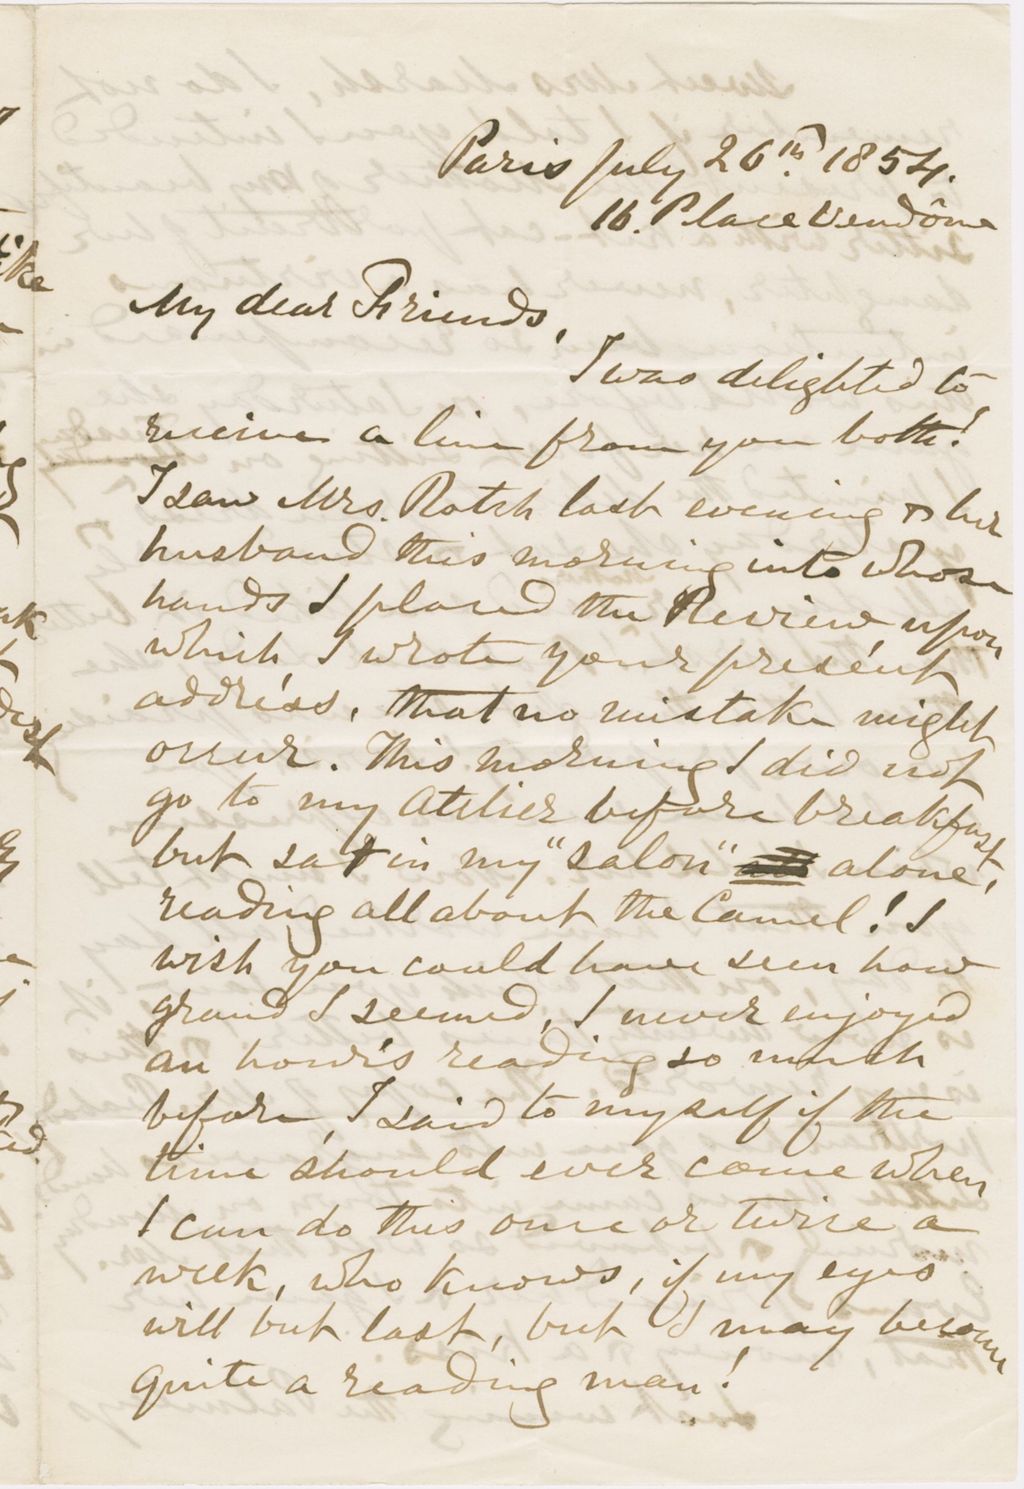 Paris July 26th. 1854.
16. Place Vendôme
My dear Friends,
I was delighted to
receive a line from you both!
I saw Mrs. Rotch last evening & her
husband this morning into whose
hands I placed the Review, upon
which I wrote your present
address, that no mistake might
occur. This morning I did not
go to my Atelier before breakfast,
but sat in my "salon" alone,
reading all about the Camel! I
wish you could have seen how
grand I seemed, I never enjoyed
an hour's reading so much
before, I said to myself if the
time should ever come when
I can do this once or twice a
week, who knows, if my eyes
will but last, but I may become
quite a reading man!
ike